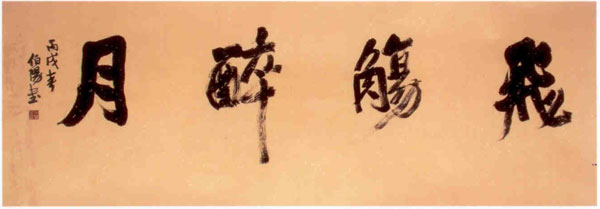 飛觴醉月
丙戌春
伯陽書